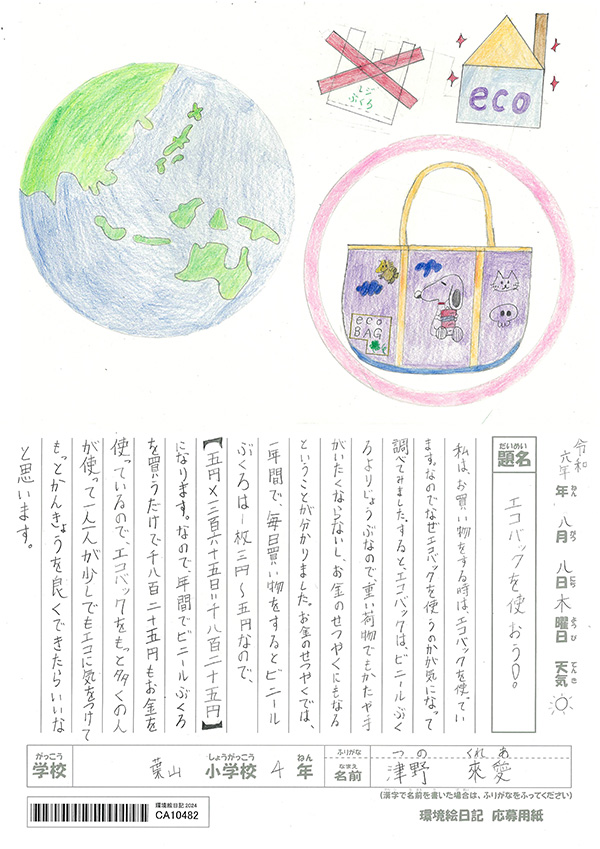 レジ
ぶくろ
eco
eco
BAG
令和六年 年 八月 八日 木曜日 天気
ねん がつ にち ようび てんき
だいめい
題名
エコバックを使おう!○。
私は、お買い物をする時は、エコバックを使ってい
ます。なのでなぜエコバックを使うのかが気になって
調べてみました。すると、エコバックは、ビニールぶく
ろよりじょうぶなので、重い荷物でもかたや手
がいたくならないし、お金のせつやくにもなる
ということが分かりました。お金のせつやくでは、
一年間で、毎日買い物をするとビニール
ぶくろは一枚三円〜五円なので、
【五円×三百六十五日=千八百二十五円】
になります。なので、年間でビニールぶくろ
を買うだけで千八百二十五円もお金を
使っているので、エコバックをもっと多くの人
が使って一人一人が少しでもエコに気をつけて
もっとかんきょうを良くできたらいいな
と思います。
がっこう
学校
葉山
しょうがっこう
小学校
4
ねん
年
ふりがな
つの くれあ
なまえ
名前
津野 來愛
(漢字で名前を書いた場合は、ふりがなをふってください)
環境絵日記 応募用紙
環境絵日記2024
CA10482